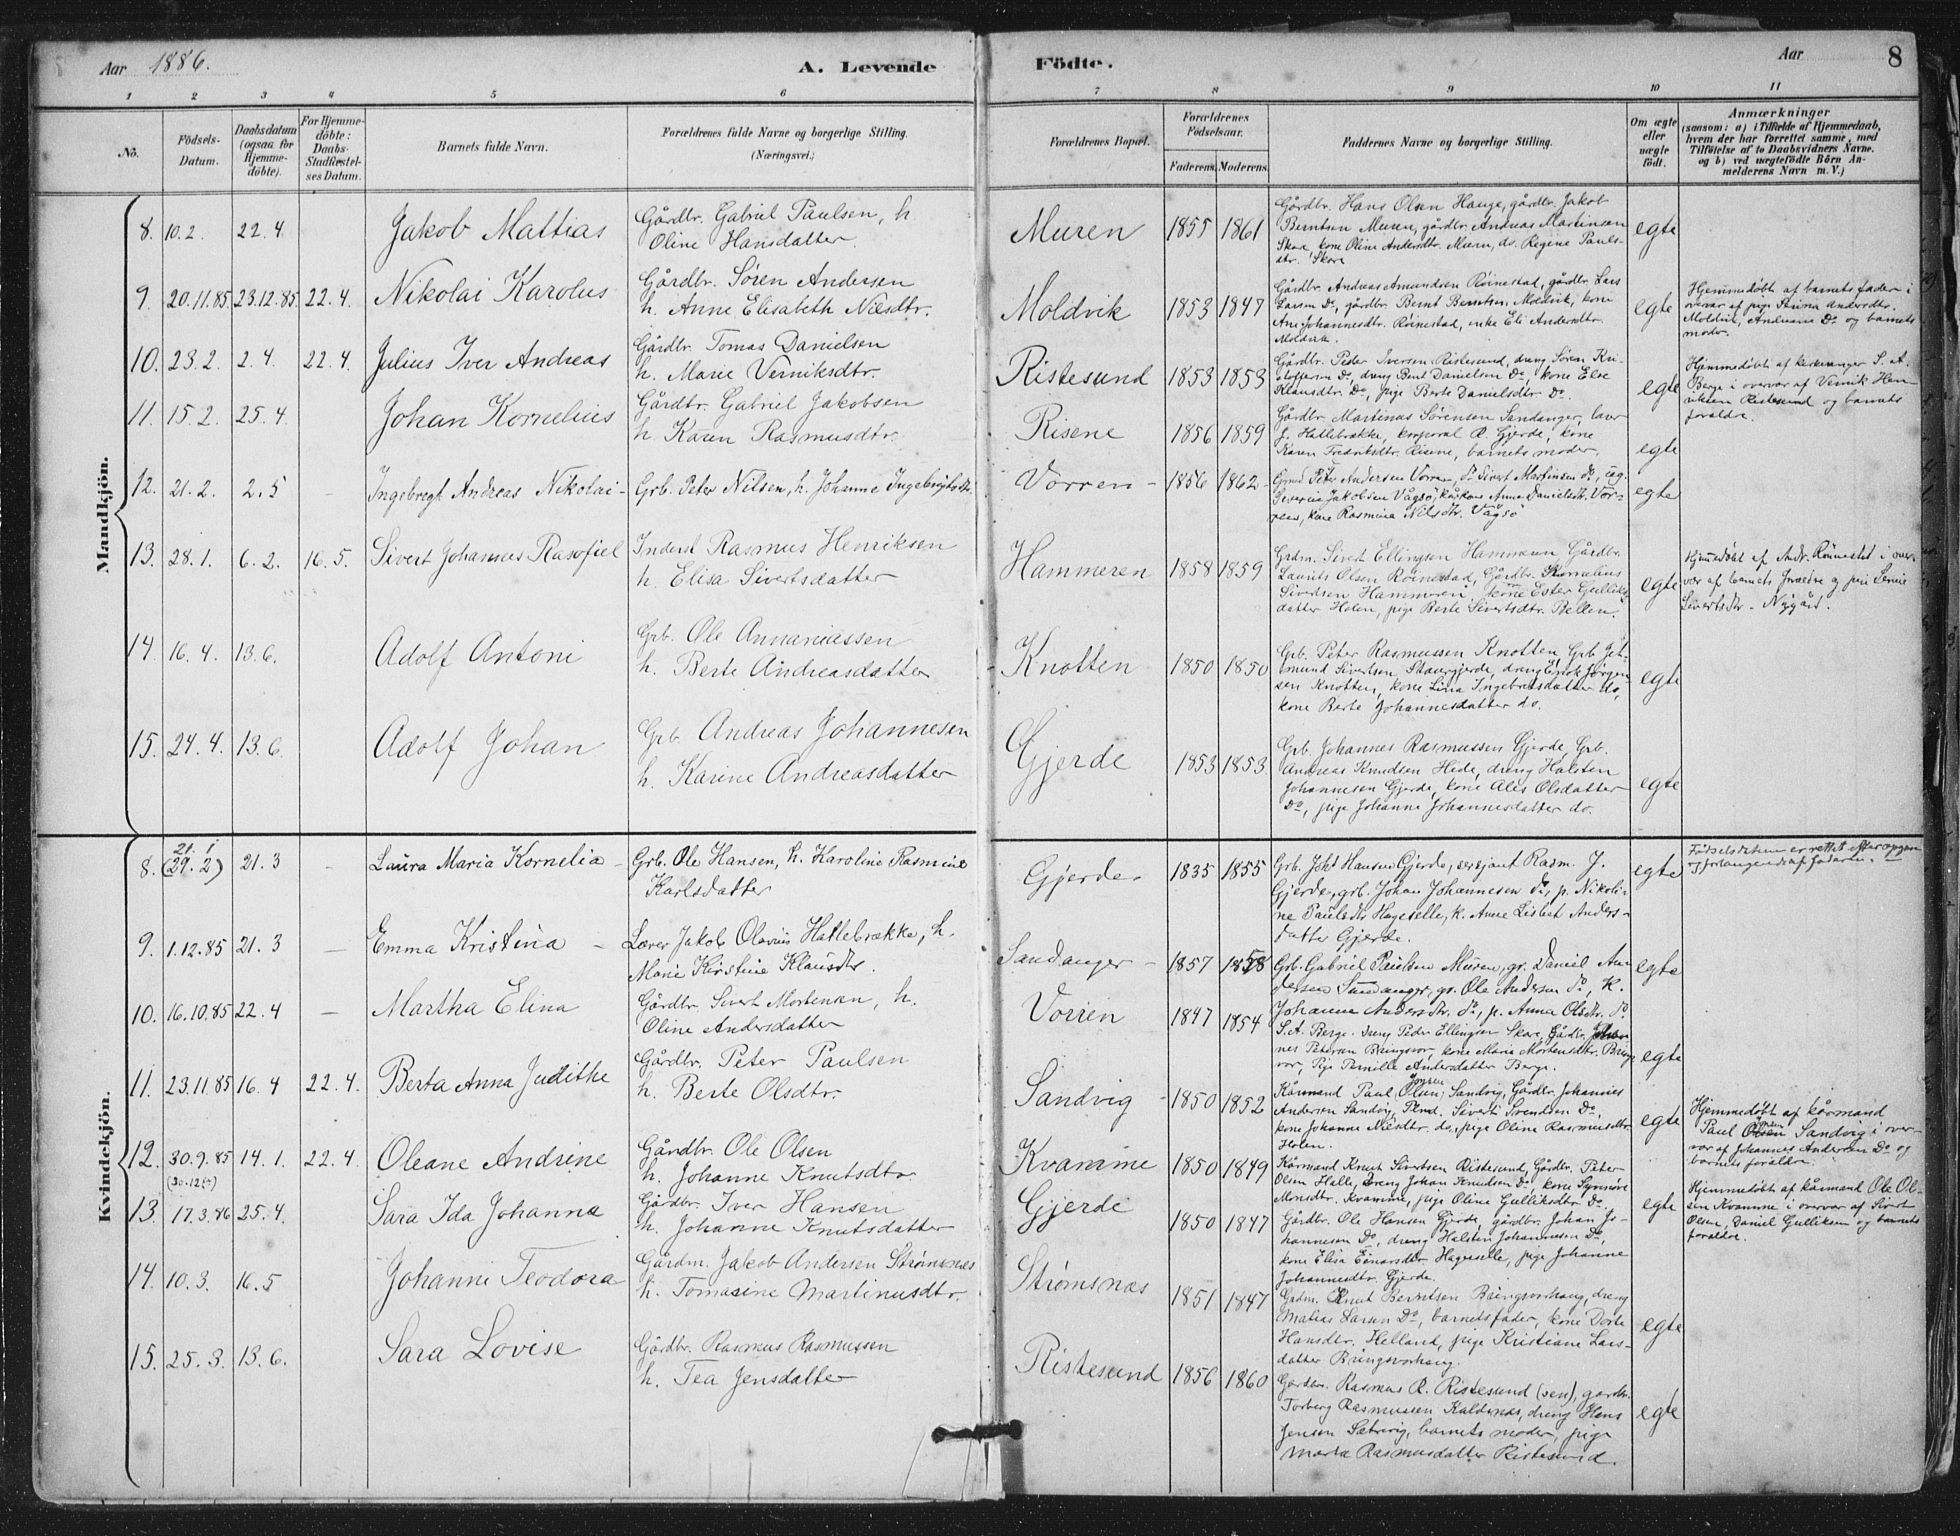 Aar 1886. A. Levende Födte. Aar 8
1 2 3 4 5 6 7 8 9 10 11
No. Födsels-Datum. Daabsdatum (ogsaa for Hjemmedöbte). For Hjemmedöbte: Daabs-Stadfæstelses Datum. Barnets fulde Navn. Forældrenes fulde Navne og borgerlige Stilling. (Næringsvei.) Forældrenes Bopæl. Forældrenes Födselsaar. Faderens. Moderens. Faddernes Navne og borgerlige Stilling. Om ægte eller uægte födt. Anmærkninger (saasom: a) i Tilfælde af Hjemmedaab, hvem der har forrettet samme, med Tilföielse af to Daabsvidners Navne. og b) ved uægtefödte Börn Anmelderens Navn m. V.)
Mandkjön.
8. 10.2. 22.4. Jakob Mattias
Gårdbr. Gabriel Paulsen, h.
Oline Hansdatter.
Muren 1855 1861
Gårdbr. Hans Olsen Hauge, gårdbr. Jakob
Berntsen Muren, gårdbr. Andreas Martinsen
Skare, kone Oline Andersdtr. Muren, do. Regine Pauls-
dtr. Skare
egte
9. 20.11.85 23.12.85 22.4. Nikolai Karolus
Gårdbr. Søren Andersen
h. Anne Elisabeth Nilsdtr.
Moldvik 1853 1847
Gårdbr. Andreas Amundsen Röinestad, gårdbr. Lars
Larsen Do, gårdbr. Bernt Berntsen Moldvik, kone
Ane Johannesdtr. Röinestad, enke Eli Andersdtr.
Moldvik.
egte
Hjemmedöbt af barnets fader i
overvær af pige Andersdtr.
Moldvik, Do og barnets
moder.
10. 23.2. 2.4. 22.4. Julius Iver Andreas
Gårdbr. Tomas Danielsen
h. Marie Verniksdtr.
Ristesund 1853 1853
Gårdbr. Peter Iversen Ristesund, dreng Søren Kri-
stoffersen Do, dreng Bent Danielsen Do, kone Else
Klausdtr. Do, pige Berte Danielsdtr. Do.
egte
Hjemmedöbt af kirkesanger S. A.
Berge i overvær af Vernik Hen-
riksen Ristesund og barnets
foraldre.
11. 15.2. 25.4. Johan Kornelius
Gårdbr. Gabriel Jakobsen
h. Karen Rasmusdtr.
Risene 1856 1859
Gårdbr. Martinus Sørensen Sandanger, lærer
J. Hatlebrække, korporal R. Gjerde, kone
Karen Fredriksdtr. Risene, barnets moder.
egte
12. 21.2. 2.5 - Ingebregt Andreas Nikolai -
Grb. Peter Nilsen, h. Johanne Ingebrigtsdtr.
Vorren - 1856 1862
Peter Andersen Vorren, Do Sivert Martinsen Do,
Severin Jakobsen Vågsö, Anna Danielsdtr. Vor-
ren, kone Rasmine Nilsdtr. Vågsö
egte
13. 28.1. 6.2. 16.5. Sivert Johannes Rasofiel
Inderst Rasmus Henriksen
h. Elisa Sivertsdatter
Hammeren 1858 1859
Grdm. Sivert Ellingsen Hammeren, Gårdbr.
Laurits Olsen Röinestad, Gårdbr. Kornelius
Sivertsen Hammeren, kone Ester Gulliks-
datter Holen, pige Berte Sivertsdtr. Bellen.
egte
Hjemmedöbt af Andr. Röinestad i over-
vær af barnets Foraldre og pige
Sivertsdtr. Nygård.
14. 16.4. 13.6. Adolf Antoni
Grb. Ole Annaniassen
h. Berte Andreasdatter
Knotten 1850 1850
Grb. Peter Rasmussen Knotten, Grb. Jet-
mund Sivertsen Skaregjerde, dreng Enok Jørgen-
sen Knotten, kone Lina Ingebretsdatter do,
kone Berte Johannesdatter do.
egte
15. 24.4. 13.6. Adolf Johan
Grb. Andreas Johannesen
h. Karine Andreasdatter
Gjerde 1853 1853
Grb. Johannes Rasmussen Gjerde, Grb.
Andreas Knudsen Hide, dreng Halsten
Johannesen Gjerde, kone Ales Olsdatter
Do, pige Johanne Johannesdatter do.
egte
Kvindekjön.
8. 21.1 (29.2) 21.3 - Laura Maria Kornelia -
Grb. Ole Hansen, h. Karoline Rasmine
Karlsdatter
Gjerde 1835 1855
Grb. Joht Hansen Gjerde, sersjant Rasm. J.
Gjerde, grb. Johan Johannesen do, p. Nikoli-
ne Paulsdtr Hageselle, k. Anne Lisbet Anders-
datter Gjerde.
egte
Födselsdatum er rettet efter opgave
og forlangende af faderen.
9. 1.12.85 21.3 - Emma Kristina -
Lærer Jakob Olavius Hatlebrække, h.
Marie Kirstine Klausdtr.
Sandanger - 1857 1858
Grb. Gabriel Paulsen Muren, gr. Daniel An-
dersen Sandanger, gr. Ole Andersen Do, K.
Johanne Andersdtr. Do, p. Anna Olsdtr. Do
egte
10. 16.10.85 22.4 - Martha Elina
Gårdbr. Sivert Mortensen, h.
Oline Andersdatter
Vorren 1847 1854
S. A. Berge, dreng Peder Ellingsen Skare, Gårdbr. Johan-
nes Petersen Bringsvor, kone Marie Mortensdtr. Brings-
vor, Pige Pernille Andersdatter Berge.
egte
11. 23.11.85 16.4 22.4. Berta Anna Judithe
Gårdbr. Peter Paulsen
h. Berte Olsdtr.
Sandvig 1850 1852
Kårmand Paul Olsen Sandvig, Gårdbr. Johannes
Andersen Sandvig, Sivert Svendsen Do,
kone Johanne Nilsdtr. do, pige Oline Rasmusdtr.
Holen.
egte
Hjemmedöbt af kårmand
Paul Olsen Sandvig i over-
vær af Johannes Andersen Do og
barnets foraldre.
12. 30.9.85 (30.12) 14.1. 22.4. Oleane Andrine
Gårdbr. Ole Olsen
h. Johanne Knutsdtr.
Kvamme 1850 1849
Kårmand Knut Sivertsen Ristesund, Gårdbr. Peter
Olsen Halle, Dreng Johan Knudsen Do, kone Synnöve
Monsdtr. Kvamme, pige Oline Gulliksdtr. Do.
egte
Hjemmedöbt af kårmand Ole Ol-
sen Kvamme i overvær af Sivert
Olsen, Daniel Gulliksen og barnets
foraldre.
13. 17.3.86 25.4. Sara Ida Johanna
Gårdbr. Iver Hansen
h. Johanne Knutsdatter
Gjerde 1850 1847
Gårdbr. Ole Hansen Gjerde, gårdbr. Johan Jo-
hannesen Do, dreng Halsten Johannesen Do,
kone Elisa Einarsdtr. Hageselle, pige Johanne
Johannesdtr. Gjerde.
14. 10.3. 16.5 Johanne Teodora
Gårdm. Jakob Andersen Strømsnæs
h. Tomasine Martinusdtr.
Strømsnæs 1851 1847
Grdm. Knut Berntsen Bringsvorhaug, dreng
Matias Larsen Do, barnets fader, kone Dorte
Hansdtr. Helland, pige Kristiane Lars-
datter Bringsvorhaug.
egte
15. 25.3. 13.6. Sara Lovise
Gårdbr. Rasmus Rasmussen
h. Tea Jensdatter
Ristesund 1856 1860
Gårdbr. Rasmus R. Ristesund (sen), gårdbr.
Torberg Rasmussen Kaldsnæs, dreng Hans
Jensen Sætrevig, barnets moder, pige
Marta Rasmusdatter Ristesund.
egte